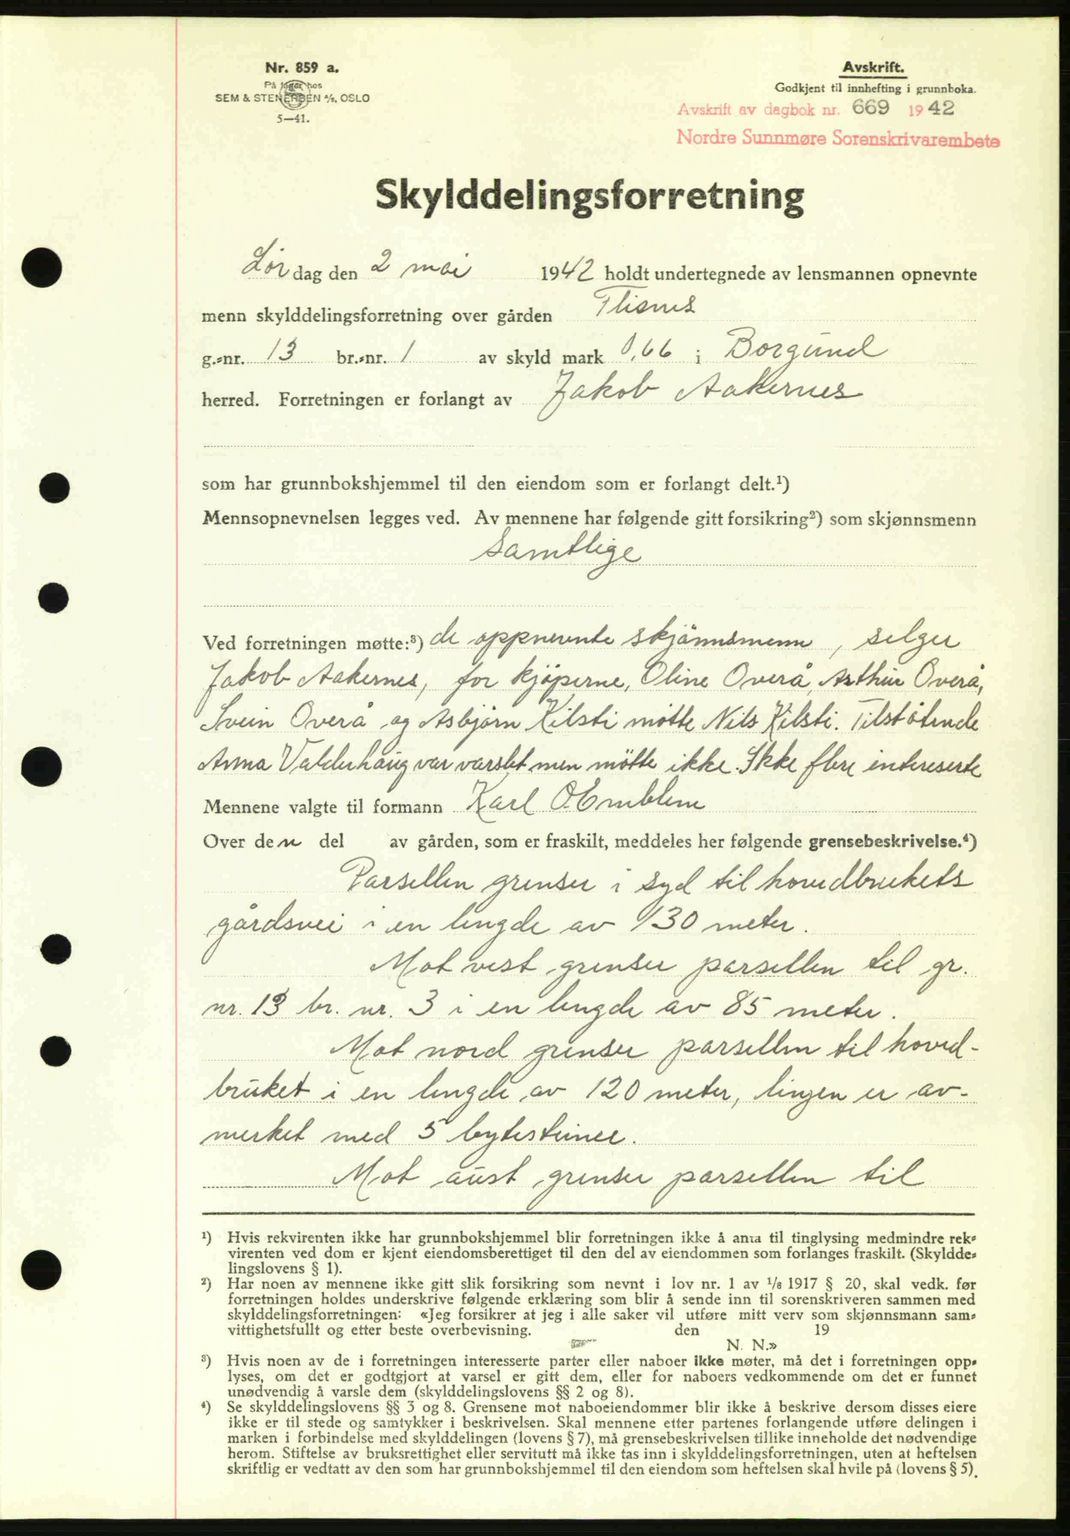 Nr. 859 a.
På lager hos
SEM & STENERSEN A/S, OSLO
5—41.
Avskrift.
Godkjent til innhefting i grunnboka.
Avskrift av dagbok nr. 669 1942
Nordre Sunnmøre Sorenskrivarembete
Skylddelingsforretning
Lørdag den 2 mai 1942 holdt undertegnede av lensmannen opnevnte
menn skylddelingsforretning over gården Flisnes
g.-nr. 13 br.-nr. 1 av skyld mark 0,66 i Borgund
herred. Forretningen er forlangt av Jakob Aakernes
som har grunnbokshjemmel til den eiendom som er forlangt delt.¹)
Mennsopnevnelsen legges ved. Av mennene har følgende gitt forsikring²) som skjønnsmenn
Samtlige
Ved forretningen møtte:³) de oppnevnte skjönnsmenn, selger
Jakob Aakernes, for kjöperne, Oline Overå, Arthur Overå,
Svein Overå og Asbjørn Kilsti møtte Nils Kilsti. Tilstötende
Anna Valderhaug var varslet men mötte ikke. Ikke flere intereserte
Mennene valgte til formann Karl O. Emblem
Over den del av gården, som er fraskilt, meddeles her følgende grensebeskrivelse.⁴)
Parsellen grenser i syd til hovedbrukets
gårdsvei i en lengde av 130 meter.
Mot vest grenser parsellen til gr.
nr. 13 br. nr. 3 i en lengde av 85 meter.
Mot nord grenser parsellen til hoved-
bruket i en lengde av 120 meter, linjen er av-
merket med 5 bytesteiner.
Mot aust grenser parsellen til
¹) Hvis rekvirenten ikke har grunnbokshjemmel blir forretningen ikke å anta til tinglysing medmindre rek-
virenten ved dom er kjent eiendomsberettiget til den del av eiendommen som forlanges fraskilt. (Skyldde-
lingslovens § 1).
²) Har noen av mennene ikke gitt slik forsikring som nevnt i lov nr. 1 av ¹/₈ 1917 § 20, skal vedk. før
forretningen holdes underskrive følgende erklæring som blir å sende inn til sorenskriveren sammen med
skylddelingsforretningen: «Jeg forsikrer at jeg i alle saker vil utføre mitt verv som skjønnsmann sam-
vittighetsfullt og etter beste overbevisning. den 19
N. N.»
³) Hvis noen av de i forretningen interesserte parter eller naboer ikke møter, må det i forretningen opp-
lyses, om det er godtgjort at varsel er gitt dem, eller for naboers vedkommende om det er funnet
unødvendig å varsle dem (skylddelingslovens §§ 2 og 8).
⁴) Se skylddelingslovens §§ 3 og 8. Grensene mot naboeiendommer blir ikke å beskrive dersom disses eiere
ikke er til stede og samtykker i beskrivelsen. Skal mennene etter partenes forlangende utføre delingen i
marken i forbindelse med skylddelingen (lovens § 7), må grensebeskrivelsen tillike inneholde det nødvendige
herom. Stiftelse av bruksrettighet eller servitutt må ikke tas inn i skylddelingsforretningen, uten at heftelsen
skriftlig er vedtatt av den som har grunnbokshjemmel til den eiendom som heftelsen skal hvile på (lovens § 5).